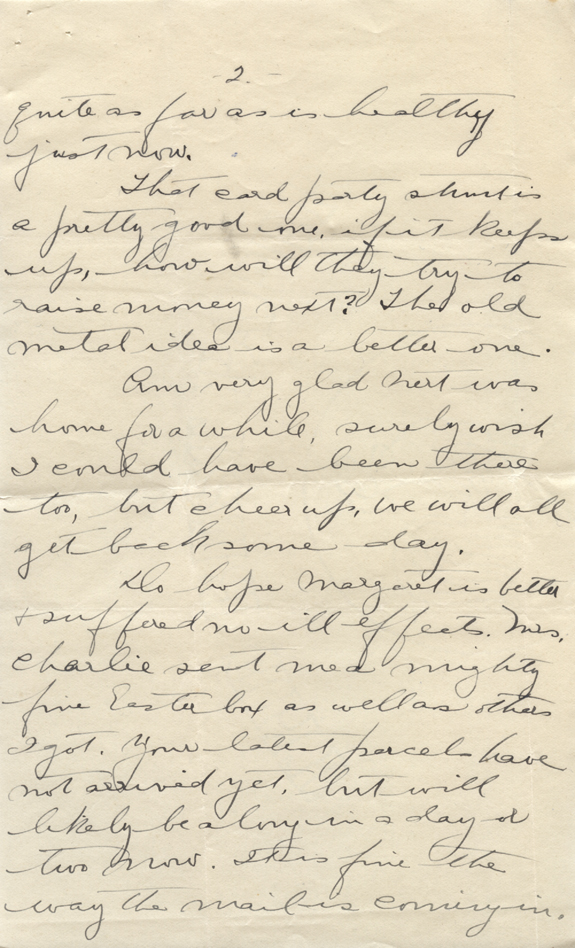 - 2 -
quite as far as is healthy
just now.
That card party stunt is
a pretty good one, if it keeps
up, how will they try to
raise money next? The old
metal idea is a better one.
Am very glad was
home for a while, surely wish
I could have been there
too, but cheer up, we will all
get back some day.
Do hope Margaret is better
& suffered no ill effects. Mrs.
Charlie sent me a mighty
fine Easter box as well as others
I got. Your latest parcels have
not arrived yet, but will
likely be along in a day or
two now. It is fine the
way the mail is coming in.